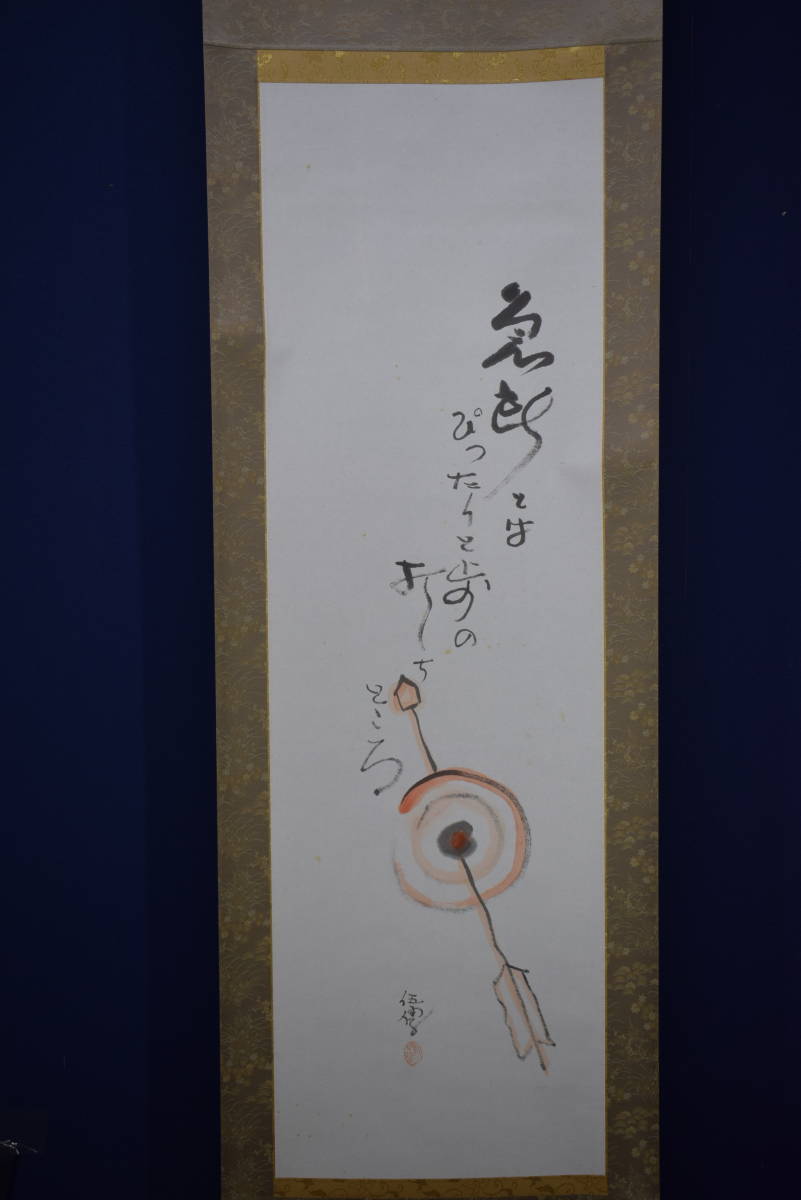 急所とは
ぴったりと歩の
おしち
ところ